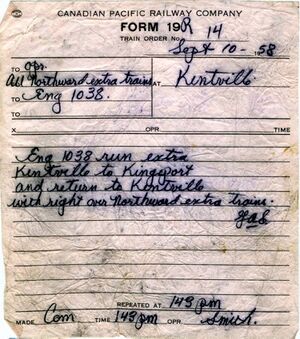 CANADIAN PACIFIC RAILWAY COMPANY
FORM 19R
TRAIN ORDER NO. 14
Sept 10 - 1958
TO Opr.
All Northward extra trains AT Kentville.
TO Eng 1038.
TO
X OPR. TIME
Eng 1038 run extra
Kentville to Kingsport
and return to Kentville
with right over Northward extra trains.
REPEATED AT 143 pm
MADE Com TIME 143 pm OPR. Smith.